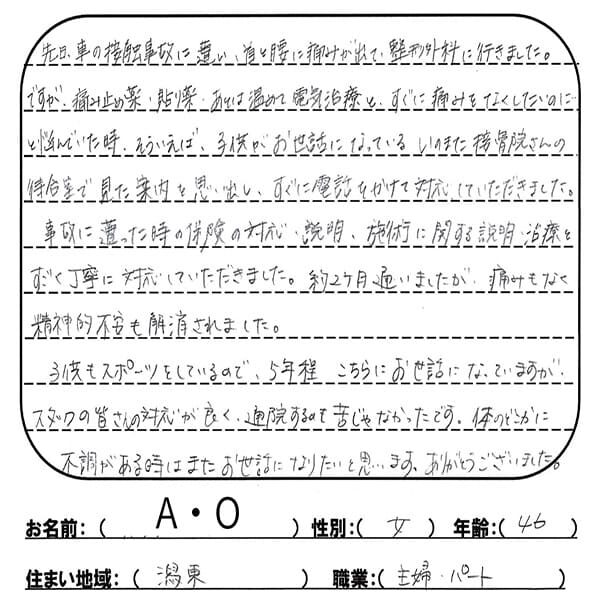 先日、車の接触事故に遭い、首と腰に痛みが出て、整形外科に行きました。
ですが、痛み止め薬・貼り薬・あとは温めて電気治療と、すぐに痛みをなくしたいのに
と悩んでいた時、そういえば、子供がお世話になっているいのまた接骨院さんの
待合室で見た案内を思い出し、すぐに電話をかけて対応していただきました。
事故に遭った時の保険の対応・説明、施術に関する説明・治療と
すごく丁寧に対応していただきました。約2ヶ月通いましたが、痛みもなく
精神的不安も解消されました。
子供もスポーツをしているので、5年程こちらにお世話になっていますが、
スタッフの皆さんの対応が良く、通院するのも苦じゃなかったです。体のどこかに
不調がある時はまたお世話になりたいと思います。ありがとうございました。
お名前：（ A・O ） 性別：（ 女 ） 年齢：（ 46 ）
住まい地域：（ 潟東 ） 職業：（ 主婦・パート ）